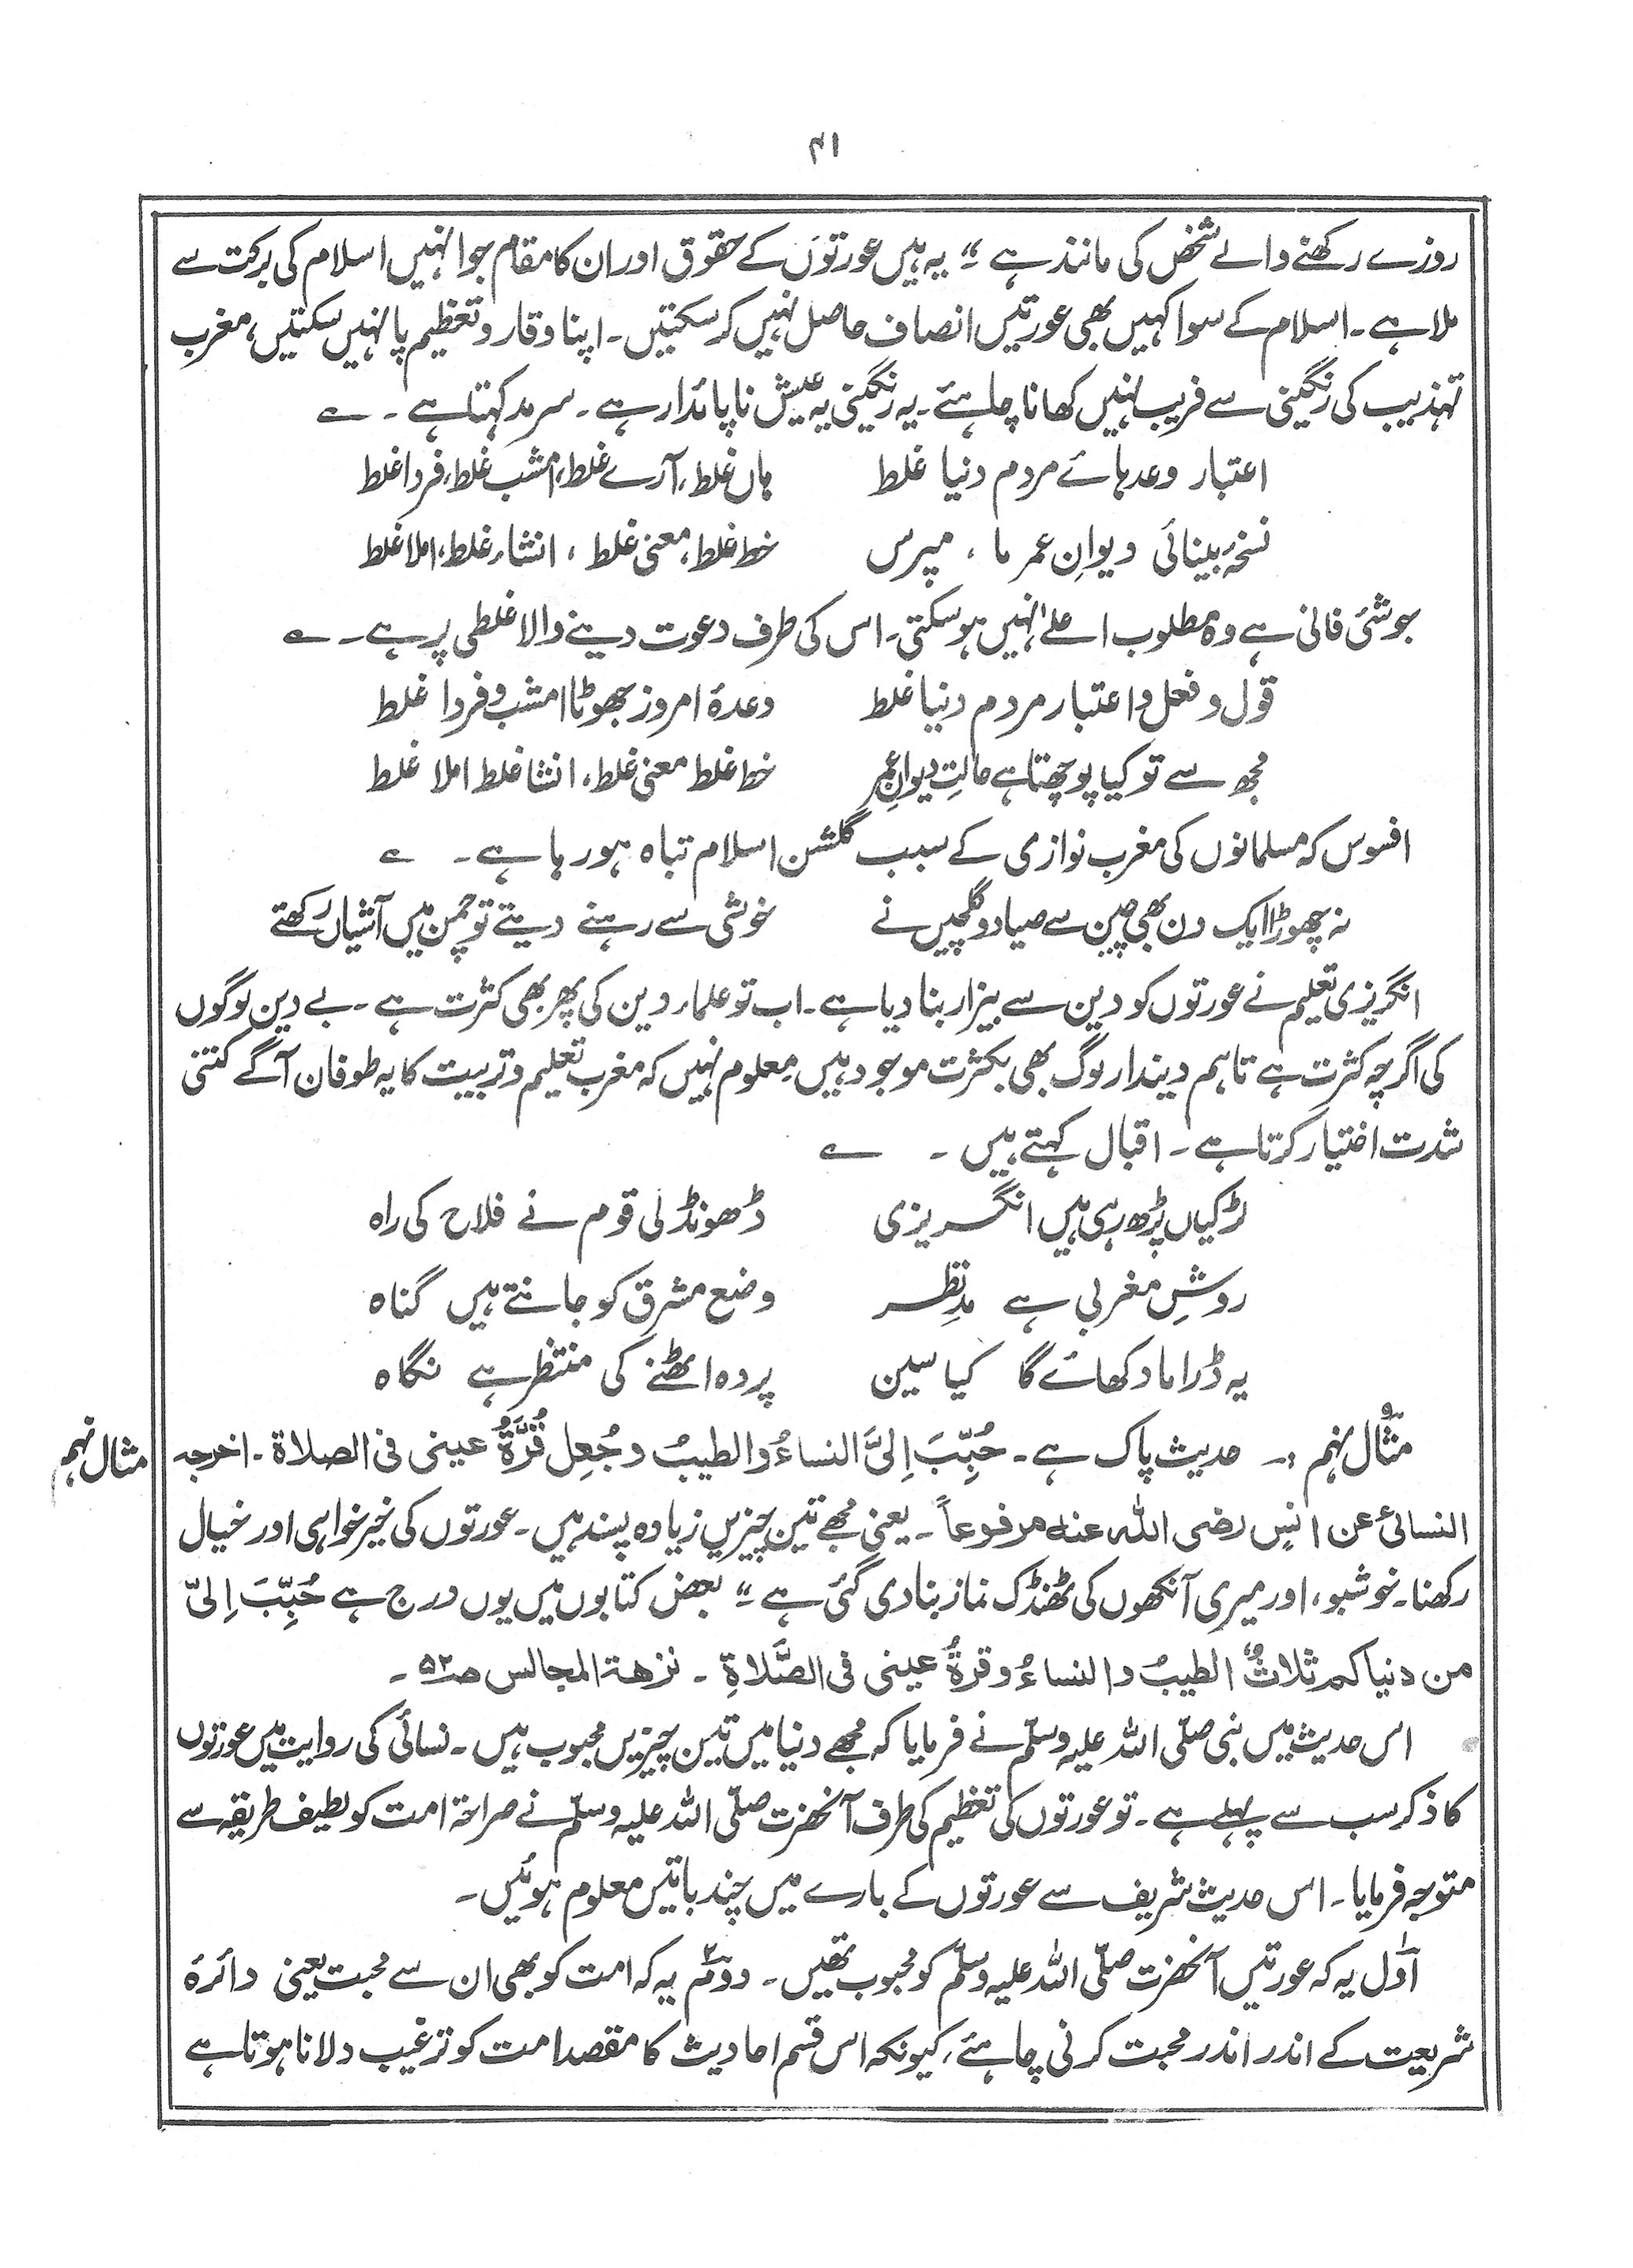 ۴۱
روزے رکھنے والے شخص کی مانند ہے ؛؛ یہ ہیں عورتوں کے حقوق اور ان کا مقام جو انہیں اسلام کی برکت سے
ملا ہے ۔ اسلام کے سوا کہیں بھی عورتیں انصاف حاصل نہیں کر سکتیں ۔ اپنا وقار و تعظیم پا نہیں سکتیں ، مغربی
تہذیب کی رنگینی سے فریب نہیں کھانا چاہئے ۔ یہ رنگینی یہ عیش ناپائدار ہے ۔ سرمد کہتا ہے ۔ ے
اعتبار وعدہائے مردم دنیا غلط ہاں غلط ، آرے غلط ، امشب غلط ، فردا غلط
نسخۂ بینائی دیوانِ عمر ما ، مپرس خط غلط ، معنی غلط ، انشاء غلط ، املا غلط
جو شئ فانی ہے وہ مطلوب اعلےٰ نہیں ہو سکتی ۔ اس کی طرف دعوت دینے والا غلطی پر ہے ۔ ے
قول و فعل و اعتبار مردم دنیا غلط وعدۂ امروز جھوٹا امشب و فردا غلط
مجھ سے تو کیا پوچھتا ہے حالتِ دیوانِ عمر خط غلط معنی غلط ، انشا غلط املا غلط
افسوس کہ مسلمانوں کی مغرب نوازی کے سبب گلشن اسلام تباہ ہو رہا ہے ۔ ے
نہ چھوڑا ایک دن بھی چین سے صیاد و گلچیں نے خوشی سے رہنے دیتے تو چمن میں آشیاں رکھتے
انگریزی تعلیم نے عورتوں کو دین سے بیزار بنا دیا ہے ۔ اب تو علماء دین کی پھر بھی کثرت ہے ۔ بے دین لوگوں
کی اگرچہ کثرت ہے تاہم دیندار لوگ بھی بکثرت موجود ہیں معلوم نہیں کہ مغرب تعلیم و تربیت کا یہ طوفان آگے کتنی
شدت اختیار کرتا ہے ۔ اقبال کہتے ہیں ۔ ے
لڑکیاں پڑھ رہی ہیں انگریزی ڈھونڈ لی قوم نے فلاح کی راہ
روشِ مغربی ہے مدِنظر وضع مشرق کو جانتے ہیں گناہ
یہ ڈراما دکھائے گا کیا سین پردہ اٹھنے کی منتظر ہے نگاہ
مثال نہم :۔ حدیث پاک ہے ۔ حُبِّبَ اِلیَّ النساءُ والطیبُ وجُعِل قُرَّۃُ عینی فی الصلاۃ ۔ اخرجہ
مثال نہم
النسائی عن انسِ رضی اللہ عنہ مرفوعاً ۔ یعنی مجھے تین چیزیں زیادہ پسند ہیں ۔ عورتوں کی خیر خواہی اور خیال
رکھنا ۔ خوشبو ، اور میری آنکھوں کی ٹھنڈک نماز بنا دی گئی ہے ؛؛ بعض کتابوں میں یوں درج ہے حُبِّبَ اِلیّ
من دنیاکم ثلاثٌ الطیبُ والنساءُ وقرۃُ عینی فی الصَّلاۃِ ۔ نزھۃ المجالس صـ۵۲ ۔
اس حدیث میں نبی صلّی اللہ علیہ وسلّم نے فرمایا کہ مجھے دنیا میں تین چیزیں محبوب ہیں ۔ نسائی کی روایت میں عورتوں
کا ذکر سب سے پہلے ہے ۔ تو عورتوں کی تعظیم کی طرف آنحضرت صلّی اللہ علیہ وسلّم نے صراحۃ امت کو لطیف طریقہ سے
متوجہ فرمایا ۔ اس حدیث شریف سے عورتوں کے بارے میں چند باتیں معلوم ہوئیں ۔
اوّل یہ کہ عورتیں آنحضرت صلّی اللہ علیہ وسلّم کو محبوب تھیں ۔ دوّم یہ کہ امت کو بھی ان سے محبت یعنی دائرۂ
شریعت کے اندر اندر محبت کرنی چاہئے ، کیونکہ اس قسم احادیث کا مقصد امت کو ترغیب دلانا ہوتا ہے